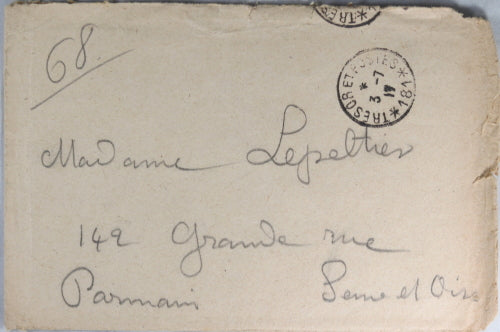 68.
TRÉS
*TRESOR ET POSTES*181*
3-7
17
Madame Lepeltier
142 Grande rue
Parmain Seine et Oise